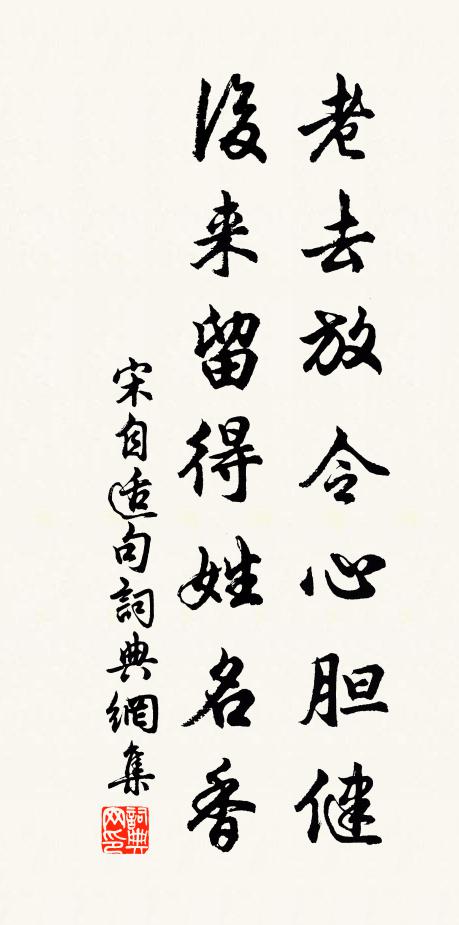 老去放令心胆健
後来留得姓名香
宋自适句詞典網集
詞典網印